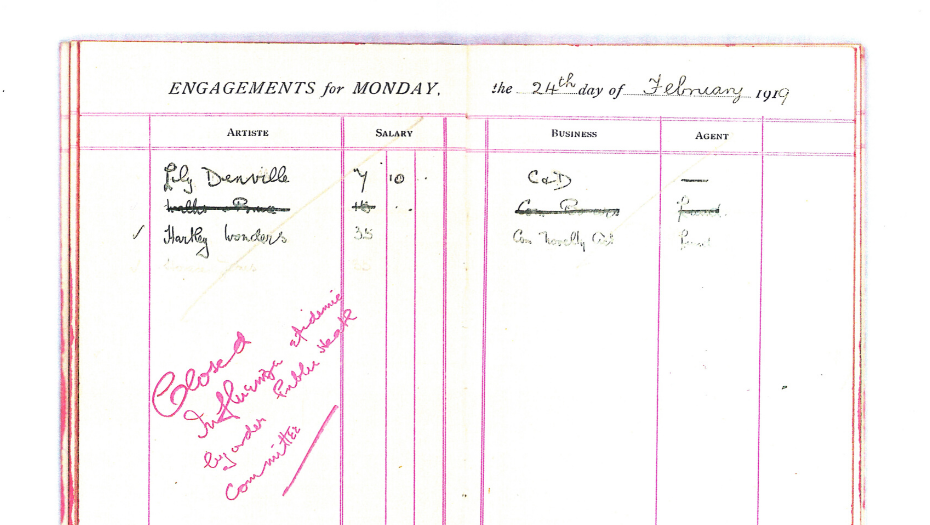 ENGAGEMENTS for MONDAY, the 24th day of February 1919
ARTISTE SALARY BUSINESS AGENT
Lily Denville 7 10 . . C & D —
Hartley Wonders 35 Com Novelty
Closed
Influenza epidemic
by order Public Health
Committee